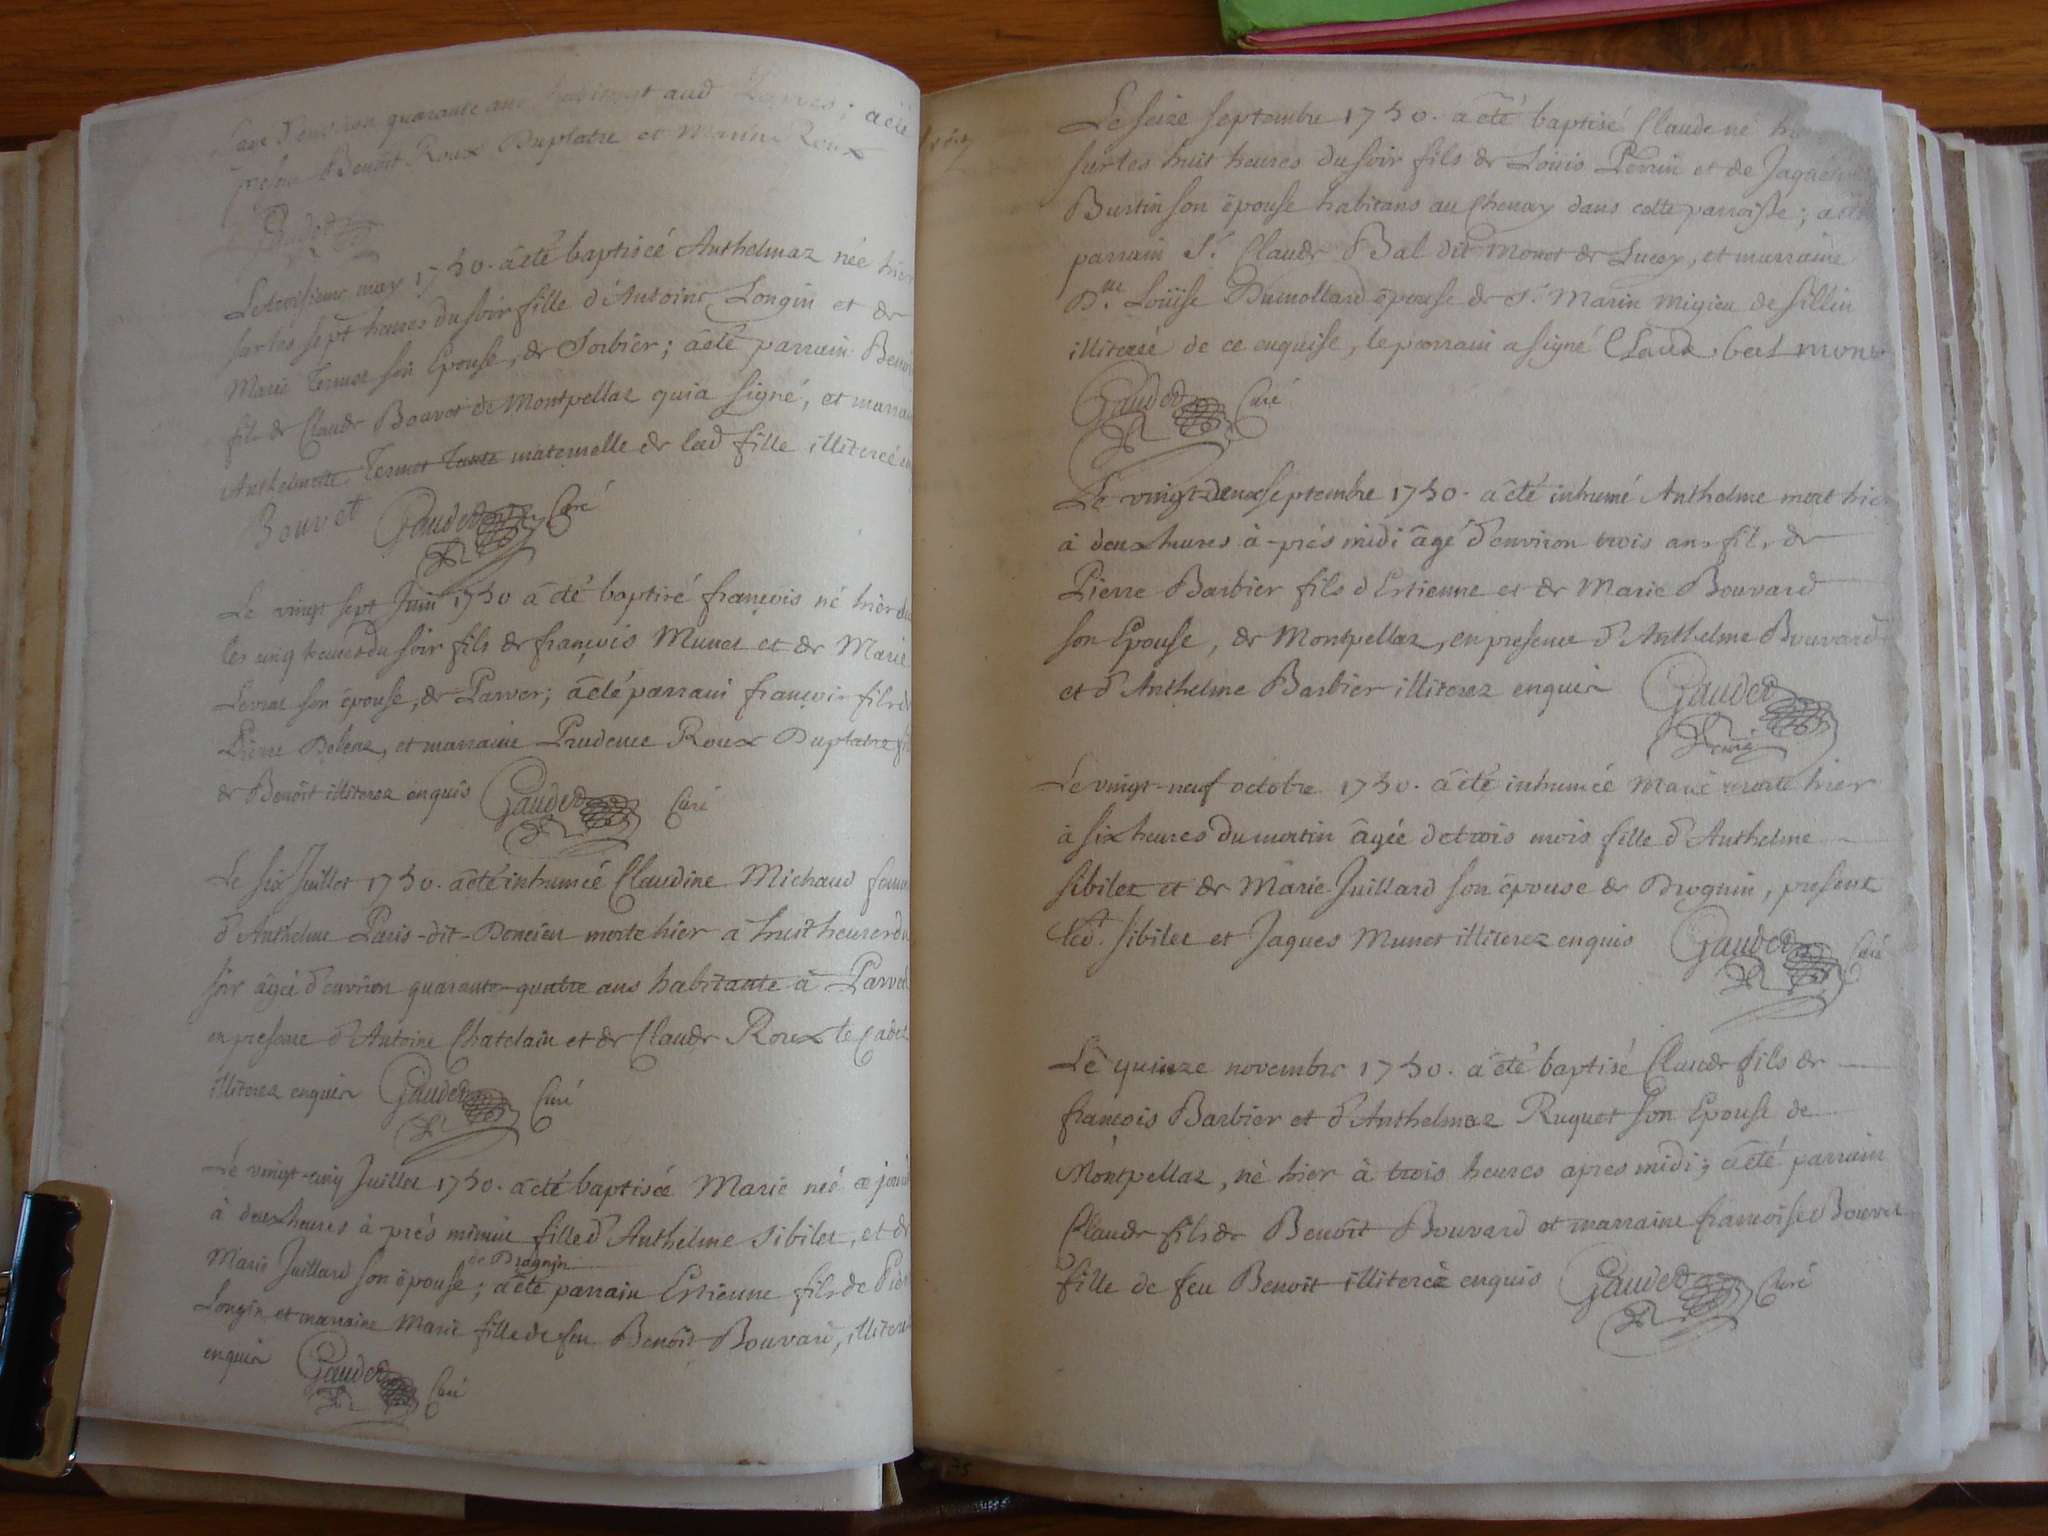 age d'environ quarante ans habitant aud Parves; a été
Benoît Roux Duplatre et Roux
Gaudet
Le troisieme may 1750. a été baptisée Anthelmaz née hier
sur les sept heures du soir fille d'Antoine Longin et de
Marie Termet son Epouse, de Sorbier; a été parrain Benoi
fils de Claude Bouvet de Montpellaz qui a signé, et marrai
Anthelmette Termet Tante maternelle de lad fille illiterée
Bouvet Gaudet Curé
Le vingt sept Juin 1750 a été baptisé françois né hier
les cinq heures du soir fils de françois Munet et de Marie
Levrat son épouse, de Parves; a été parrain françois fils de
Pierre et marraine Prudence Roux Duplatre
de Benoît illiterez enquis Gaudet Curé
Le six Juillet 1750. a été inhumée Claudine Michaud femme
d'Anthelme Paris-dit-Doncieu morte hier à huit heures du
soir âgée d'environ quarante-quatre ans habitante à Parves
en presence d'Antoine Chatelain et de Claude Roux le Cadet
illiterez enquis Gaudet Curé
Le vingt-cinq Juillet 1750. a été baptisée Marie née ce jourd
à deux heures à près minuit fille d'Anthelme Sibilet, et de
de Drognin
Marie Juillard son épouse; a été parrain Estienne fils de
Longin et marraine Marie fille de feu Benoît Bouvard, illiterez
enquis Gaudet Curé
Le seize septembre 1750. a été baptisé Claude né hier
sur les huit heures du soir fils de Loüis Perrin et de Jaqueline
Burtin son épouse habitans au Chenay dans cette parroisse; a été
parrain Sr. Claude Bal dit Monet de Lucey, et marraine
Dlle. Loüise Dumollard épouse de Sr. Marin Migieu de Sillin
illiterée de ce enquise, le parrain a signé Claude bal mone
Gaudet Curé
Le vingt-deux septembre 1750. a été inhumé Anthelme mort hier
à deux heures à-près midi âgé d'environ trois ans fils de
Pierre Barbier fils d'Estienne et de Marie Bouvard
son Epouse, de Montpellaz, en presence d'Anthelme Bouvard
et d'Anthelme Barbier illiterez enquis Gaudet
Curé
Le vingt-neuf octobre 1750. a été inhumée Marie morte hier
à six heures du matin âgée de trois mois fille d'Anthelme
Sibilet et de Marie Juillard son épouse de Drognin, present
led. Sibilet et Jaques Munet illiterez enquis Gaudet Curé
Le quinze novembre 1750. a été baptisé Claude fils de
françois Barbier et d'Anthelmaz Ruquet son Epouse de
Montpellaz, né hier à trois heures apres midi; a été parrain
Claude fils de Benoît Bouvard et marraine françoise Bouvet
fille de feu Benoît illiterez enquis Gaudet Curé